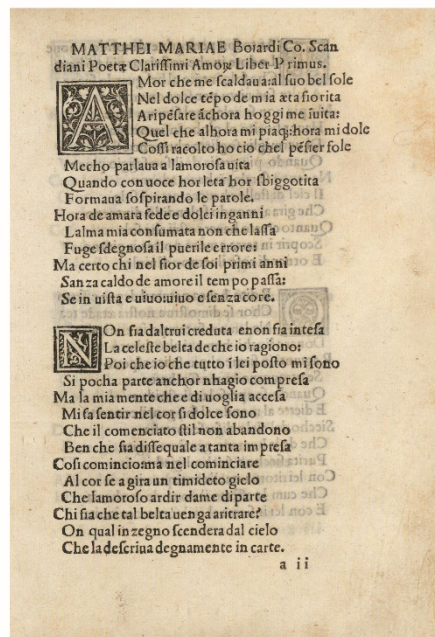 MATTHEI MARIAE Boiardi Co. Scan
diani Poetæ Clarissimi Amoꝝ Liber Primus.
AMor che me scaldaua: al suo bel sole
Nel dolce tẽpo de mia æta fiorita
A ripẽsare ãchora hoggi me ĩuita:
Quel che alhora mi piaq;: hora mi dole
Cossi racolto ho cio chel pẽsier fole
Mecho parlaua a lamorosa uita
Quando con uoce hor leta hor sbiggotita
Formaua sospirando le parole.
Hora de amara fede e dolci inganni
Lalma mia consumata non che lassa
Fuge sdegnosa il puerile errore:
Ma certo chi nel fior de soi primi anni
Sanza caldo de amore il tempo passa:
Se in uista e uiuo: uiuo e senza core.
NOn fia daltrui creduta e non fia intesa
La celeste belta de che io ragiono:
Poi che io che tutto ĩ lei posto mi sono
Si pocha parte anchor nhagio compresa
Ma la mia mente che e di uoglia accesa
Mi fa sentir nel cor si dolce sono
Che il comenciato stil non abandono
Ben che sia dissequale a tanta impresa
Cosi comincio: ma nel cominciare
Al cor se agira un timideto gielo
Che lamoroso ardir da me diparte
Chi fia che tal belta uenga a ritrare?
On qual inzegno scendera dal cielo
Che la descriua degnamente in carte.
a ii